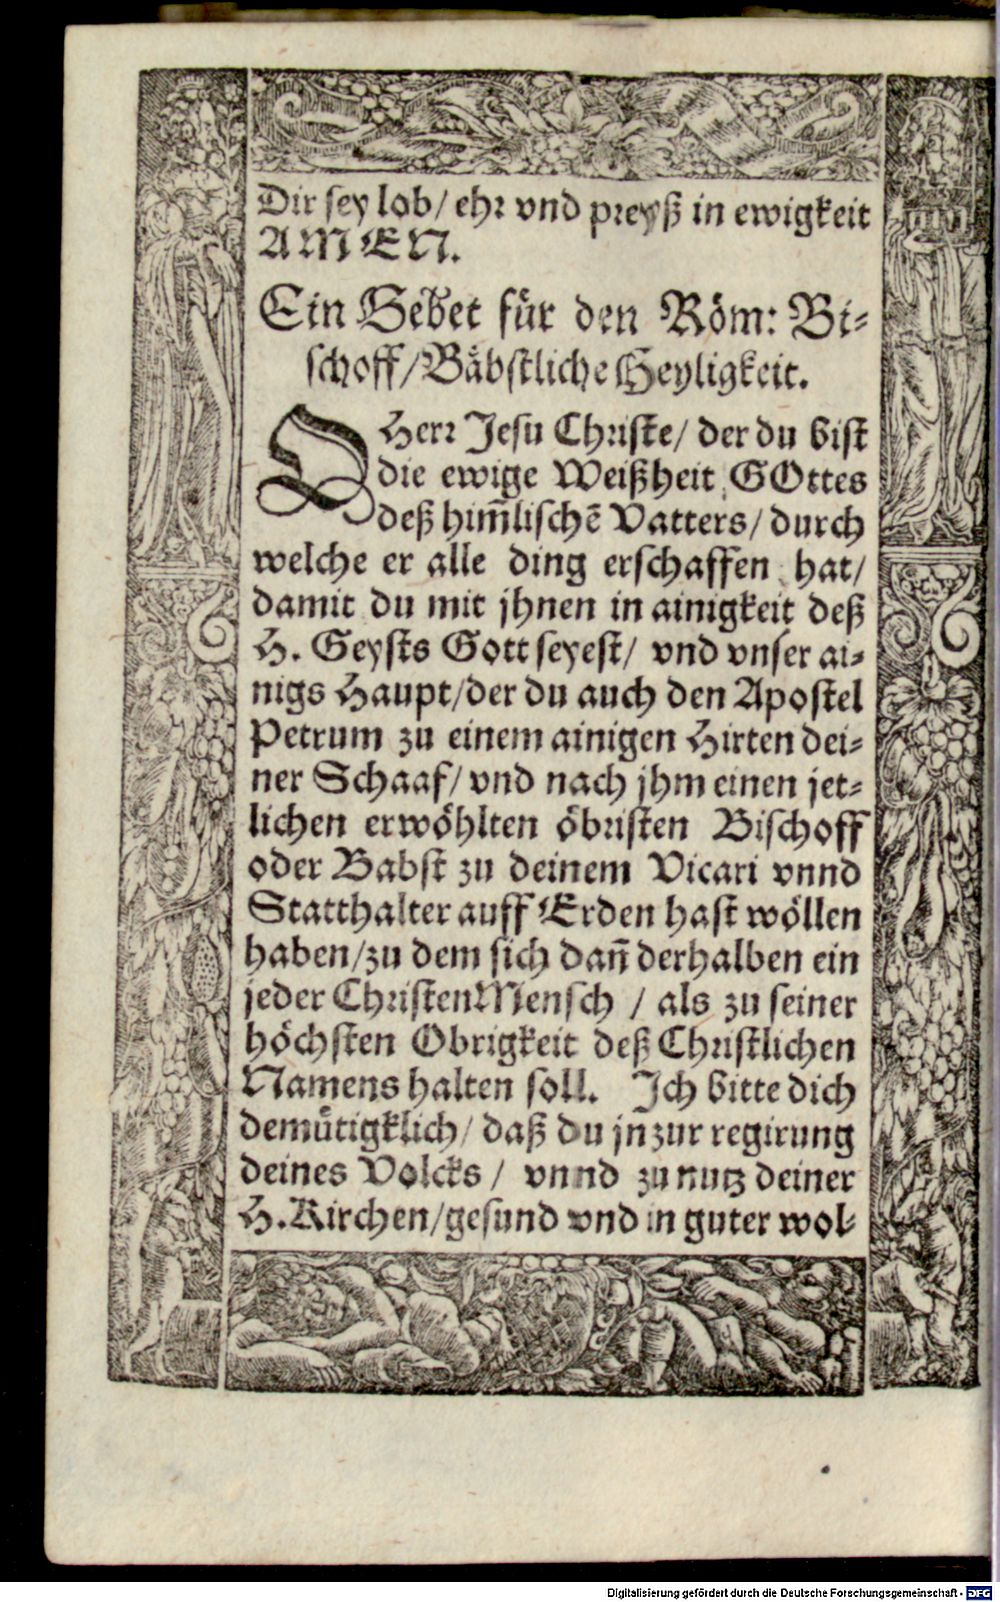 Dir sey lob/ ehr vnd preyß in ewigkeit
AMEN.
Ein Gebet für den Röm: Bi-
schoff/ Bäbstliche Heyligkeit.
O Herr Jesu Christe/ der du bist
die ewige Weißheit GOttes
deß him̃lischẽ Vatters/ durch
welche er alle ding erschaffen hat/
damit du mit jhnen in ainigkeit deß
H. Geysts Gott seyest/ vnd vnser ai-
nigs Haupt/ der du auch den Apostel
Petrum zu einem ainigen Hirten dei-
ner Schaaf/ vnd nach jhm einen jet-
lichen erwöhlten öbristen Bischoff
oder Babst zu deinem Vicari vnnd
Statthalter auff Erden hast wöllen
haben/ zu dem sich dañ derhalben ein
jeder ChristenMensch / als zu seiner
höchsten Obrigkeit deß Christlichen
Namens halten soll. Jch bitte dich
demütigklich/ daß du jn zur regirung
deines Volcks / vnnd zu nutz deiner
H. Kirchen/ gesund vnd in guter wol-
Digitalisierung gefördert durch die Deutsche Forschungsgemeinschaft - DFG